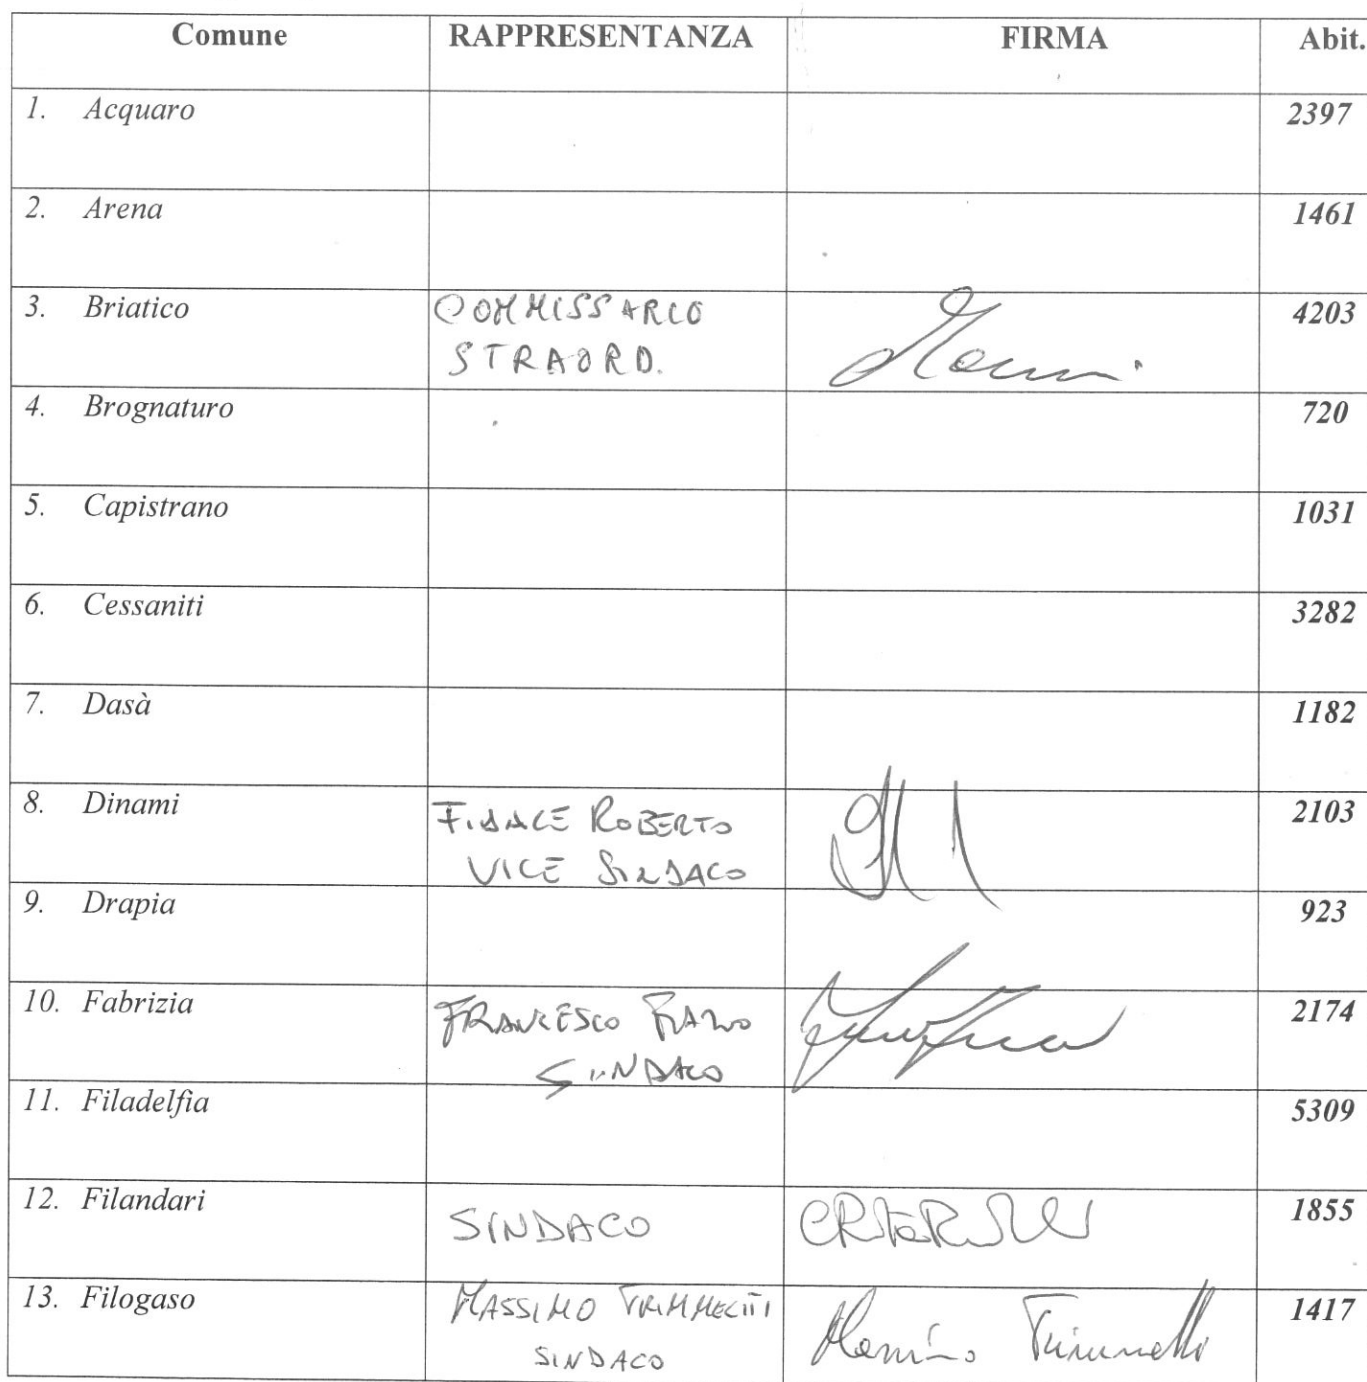 Comune RAPPRESENTANZA FIRMA Abit.
1. Acquaro 2397
2. Arena 1461
3. Briatico COMMISSARIO 4203
STRAORD.
4. Brognaturo 720
5. Capistrano 1031
6. Cessaniti 3282
7. Dasà 1182
8. Dinami ROBERTO 2103
VICE SINDACO
9. Drapia 923
10. Fabrizia FRANCESCO FAZIO 2174
SINDACO
11. Filadelfia 5309
12. Filandari SINDACO 1855
13. Filogaso MASSIMO 1417
SINDACO